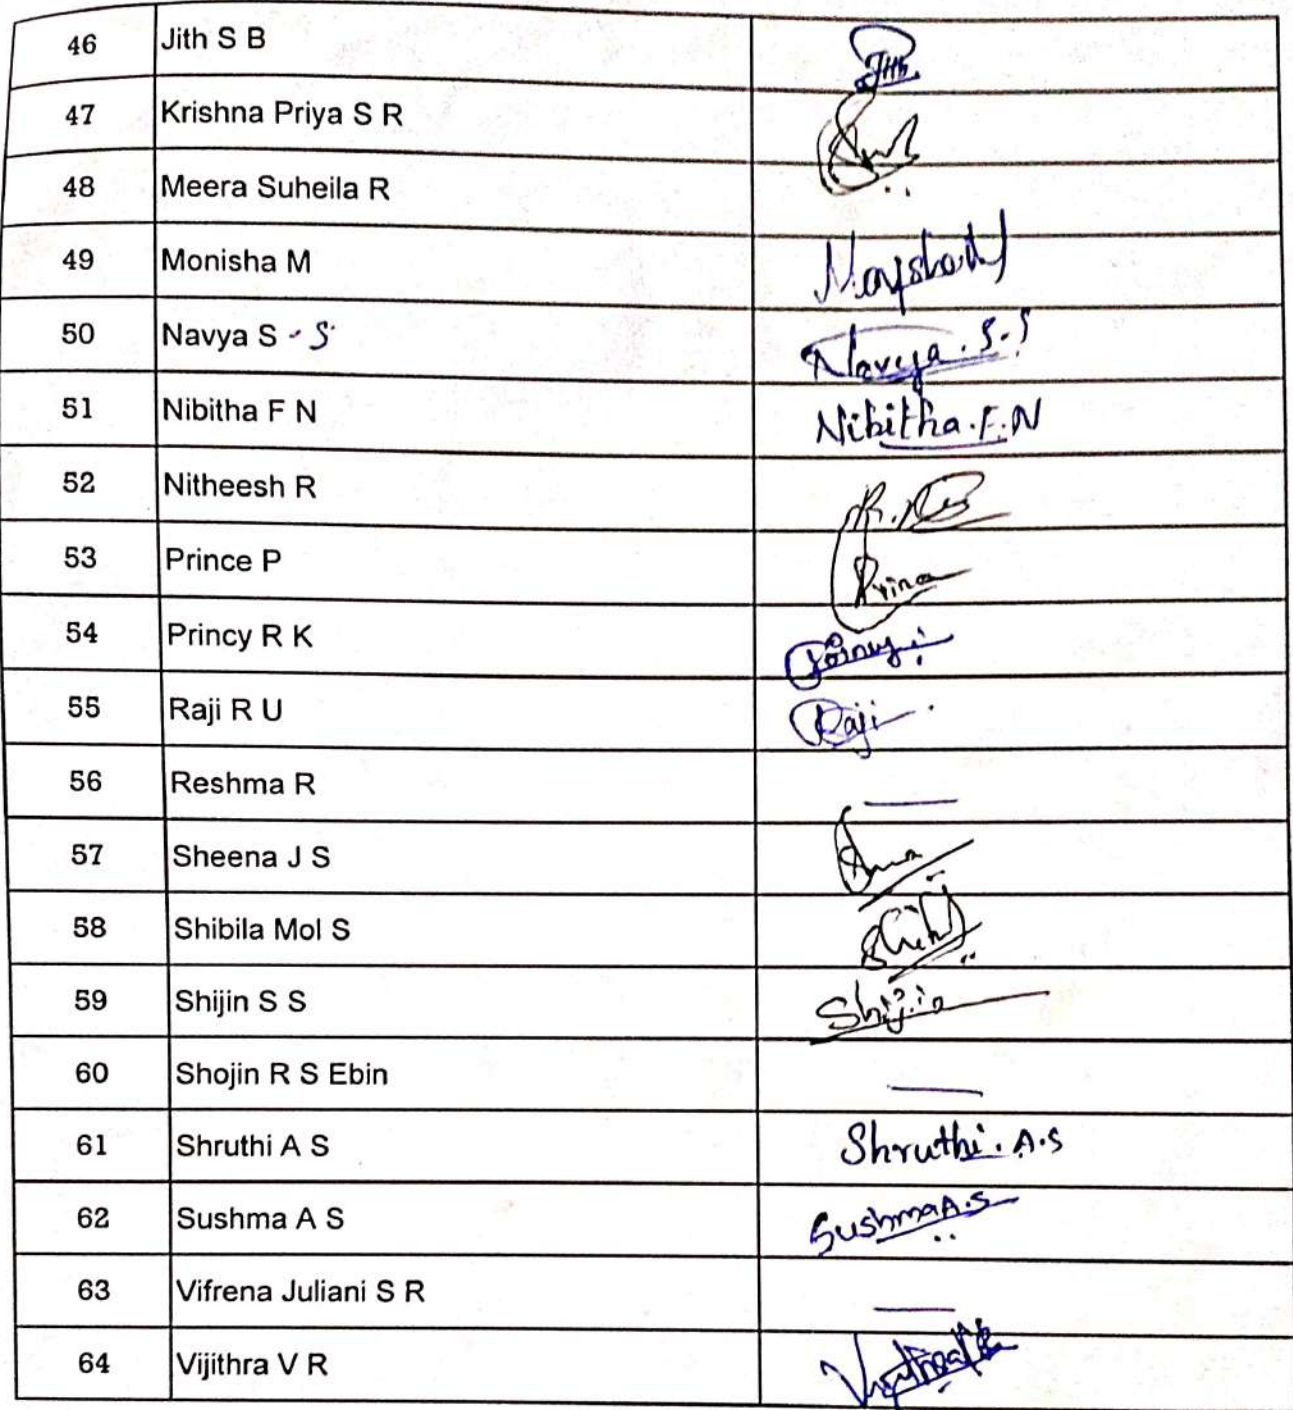 46 Jith S B Jith
47 Krishna Priya S R
48 Meera Suheila R
49 Monisha M
50 Navya S - S Navya . S . S
51 Nibitha F N Nibitha . F . N
52 Nitheesh R
53 Prince P Prince
54 Princy R K Princy
55 Raji R U Raji
56 Reshma R —
57 Sheena J S
58 Shibila Mol S
59 Shijin S S Shijin
60 Shojin R S Ebin —
61 Shruthi A S Shruthi . A.S
62 Sushma A S Sushma A.S
63 Vifrena Juliani S R —
64 Vijithra V R